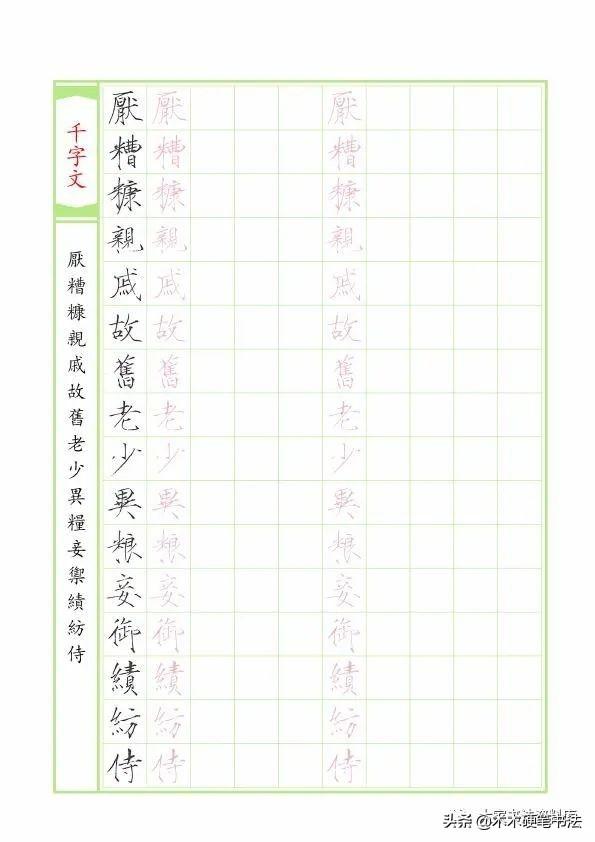 千字文
厭糟糠親戚故舊老少異糧妾禦績紡侍
厭糟糠親戚故舊老少異粮妾御績紡侍
厭糟糠親戚故舊老少異粮妾御績紡侍
厭糟糠親戚故舊老少異粮妾御績紡侍
头条 @木木硬笔书法